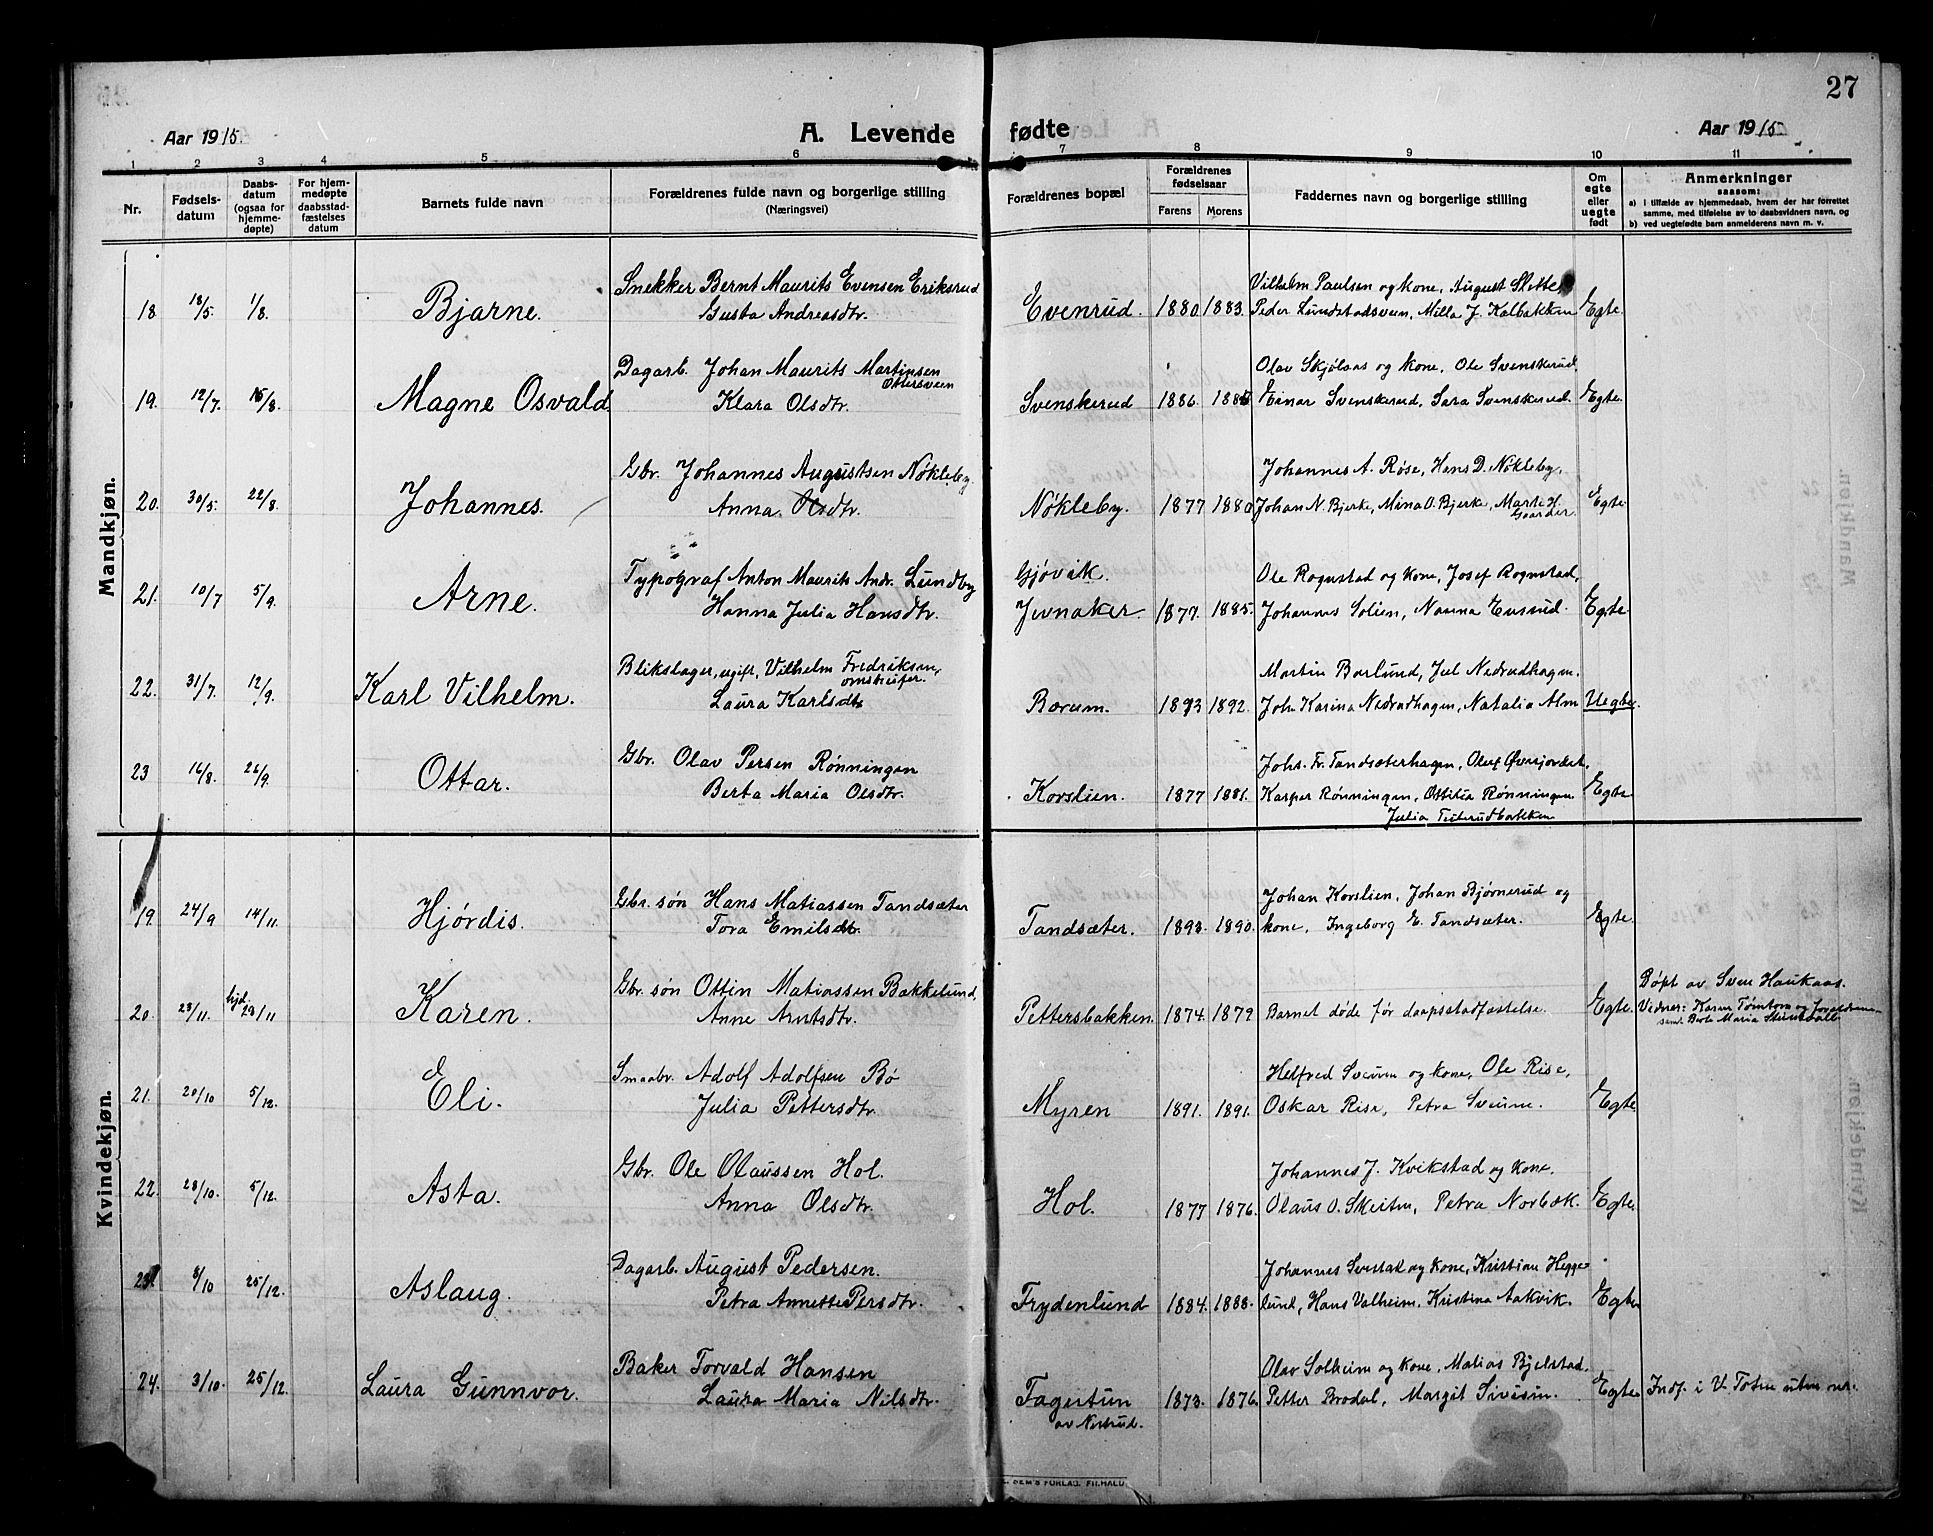 27
Aar 1915.
A. Levende fødte
Aar 1915
1 2 3 4 5 6 7 8 9 10 11
Nr.
Fødsels-
datum
Daabs-
datum
(ogsaa for
hjemme-
døpte)
For hjem-
medøpte
daabsstad-
fæstelses
datum
Barnets fulde navn
Forældrenes fulde navn og borgerlige stilling
(Næringsvei)
Forældrenes bopæl
Forældrenes
fødselsaar
Farens Morens
Faddernes navn og borgerlige stilling
Om
egte
eller
uegte
født
Anmerkninger
saasom:
a) i tilfælde av hjemmedaab, hvem der har forrettet
samme, med tilføielse av to daabsvidners navn, og
b) ved uegtefødte barn anmelderens navn m. v.
Mandkjøn.
Snekker Bernt Maurits Evensen Eriksrud Vilhelm Paulsen og kone, August
18 18/5 1/8. Bjarne. Gusta Andreasdtr. Evenrud. 1880 1883. Peder Lundstadsveen, Milla J. Kalbakken Egte.
Dagarb. Johan Maurits Martinsen Olav Skjölaas og kone, Ole Svenskerud,
Ottersveen
19. 12/7. 15/8. Magne Osvald Klara Olsdtr. Svenskerud 1886. Einar Svenskerud, Sara Svenskerud. Egte.
Gbr. Johannes Augustsen Nökleby Johannes A. Røse, Hans D. Nökleby,
20. 30/5. 22/8. Johannes. Anna Nökleby. 1877 1880 Johan N. Bjerke, Mina O. Bjerke, Marte H. Egte
Gaarder
Typograf Anton Maurits Andr. Lundby Gjövik. Ole Rognstad og kone, Josef Rognstad,
21. 10/7 5/9. Arne. Hanna Julia Hansdtr. Jevnaker. 1877. 1885. Johannes Solien, Egte
Blikslager, ugift, Vilhelm Fredriksen, Martin Borlund, Jul Nedrudhagen.
22. 31/7. 12/9. Karl Vilhelm. Laura Karlsdtr Bærum. 1893 1892. Joh. Karina Nedrudhagen, Natalia Alm Uegte.
Gbr. Olav Persen Rönningen Johs. Fr. Tandsæterhagen, Oluf Øversjordet,
23 16/8. 26/9. Ottar. Berta Maria Olsdtr. Korslien. 1877 1881. Kasper Rönningen, Ottilia Rönningen Egte
Julia Teterudbakken
Kvindekjøn.
Gbr. søn Hans Matiassen Tandsæter Johan Korslien, Johan Bjørnerud og
19. 24/9 14/11. Hjördis. Tora Emilsdtr. Tandsæter. 1893. 1890. kone, Ingeborg E. Tandsæter. Egte.
Gbr. søn Ottin Matiassen Bakkelund, Døpt av Sven Haukaas.
20. 23/11. hjd. 29/11 Karen. Anne Arntsdtr. Pettersbakken. 1874. 1879 Barnet døde før daapsstadfæstelse. Egte. Vidner: Karen Tømten og forældrene
samt Berte Maria
Smaabr. Adolf Adolfsen Bö Helfred Sveum og kone, Ole Rise,
21. 20/10 5/12. Eli. Julia Pettersdtr. Myren 1891. 1891. Oskar Rise, Petra Sveum. Egte
Gbr. Ole Olaussen Hol. Johannes J. Kvikstad og kone,
22. 28/10. 5/12. Asta. Anna Olsdtr. Hol. 1877 1876. Olaus O. Petra Norbæk. Egte.
Dagarb. August Pedersen. Johannes og kone, Kristian Hegge-
23. 8/10 25/12. Aslaug. Petra Annette Persdtr. Frydenlund 1884. 1888. lund, Hans Valheim, Kristina Aakvik. Egte
Baker Torvald Hansen Olav Solheim og kone, Matias Bjelstad,
24. 3/10. 25/12. Laura Gunnvor. Laura Maria Nilsdtr. Fagertun 1873. 1876. Petter Brodal, Margit Sivesin. Egte Indf. i V. Toten uten nr.
av Nerrud.
Mandkjøn.
Kvindekjøn.